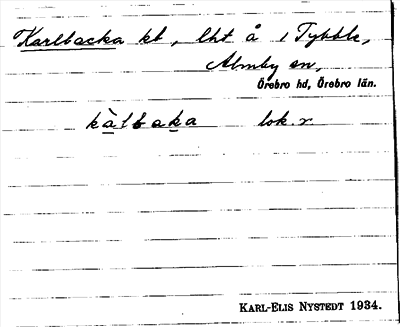 Karlbacka kb, lht å 1 Tybble,
Almby sn,
Örebro hd, Örebro län.
kàlbaka lok r.
KARL-ELIS NYSTEDT 1934.